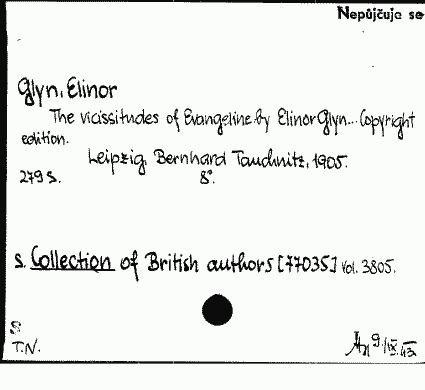 Nepůjčuje se
Glyn, Elinor
The vicissitudes of Evangeline by Elinor Glyn... Copyright
edition.
Leipzig, Bernhard Tauchnitz, 1905.
279 s. 8°.
s. Collection of British authors [77035] Vol. 3805.
S
T.N.
9/IX.